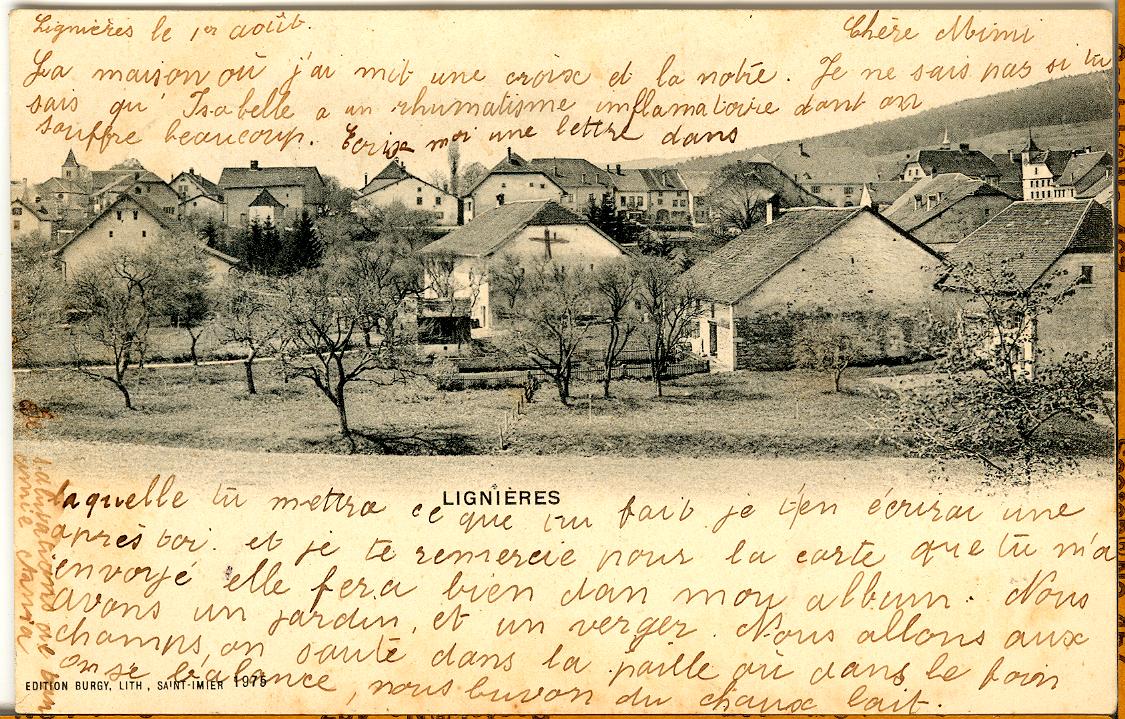 Lignières le 1er août.
Chère Mimi
La maison où j'ai mit une croix et la notre. Je ne sais pas si tu
sais qu' Isabelle a un rhumatisme inflamatoire dont on
souffre beaucoup. Ecrise moi une lettre dans
LIGNIÈRES
laquelle tu mettra ce que tu fait je t'en écrirai une
après toi. et je te remercie pour la carte que tu m'a
envoyé elle fera bien dan mon album. Nous
avons un jardin, et un verger. Nous allons aux
champs, on saute dans la paille où dans le foin
on se balance, nous buvon du chaux lait.
EDITION BURGY, LITH, SAINT-IMIER 1975
amie chérie